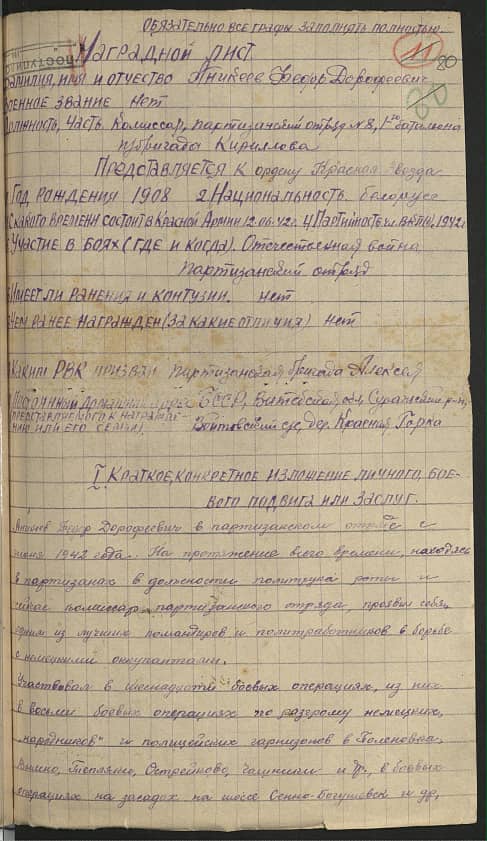 Обязательно все графы заполнять полностью.
11
80
Наградной лист
Фамилия, имя и отчество Аникеев Федор Дорофеевич
военное звание нет
Должность, часть Комиссар, партизанский отряд №8, 1го батальона
п/бригада Кириллова
Представляется к ордену Красная звезда
Год рождения 1908 2. Национальность белорус
С какого времени состоит в Красной Армии 12.06.42г. 4 Партийность 1942г
Участие в боях (где и когда). Отечественная война
партизанский отряд
Имеет ли ранения и контузии. нет
Чем ранее награжден (за какие отличия) нет
Каким РВК призван партизанская бригада Алексея
Постоянный домашний адрес БССР, Витебская обл. Суражский р-н,
представляемого к награждению
нию или его семьи) Войтовский с/с, дер. Красная Горка
I Краткое, конкретное изложение личного, бое-
вого подвига или заслуг.
Аникеев Федор Дорофеевич в партизанском отряде с
июня 1942 года. На протяжение всего времени, находясь
в партизанах в должности политрука роты и
сейчас комиссар партизанского отряда, проявил себя,
одним из лучших командиров и политработников в борьбе
с немецкими оккупантами.
Участвовал в боевых операциях, из них
в восьми боевых операциях по разгрому немецких,
"народников" и полицейских гарнизонов в
Вымно, Тепляки, Островно, Чашники и др, в боевых
операциях на засадах на шоссе Сенно-Богушевск и др,